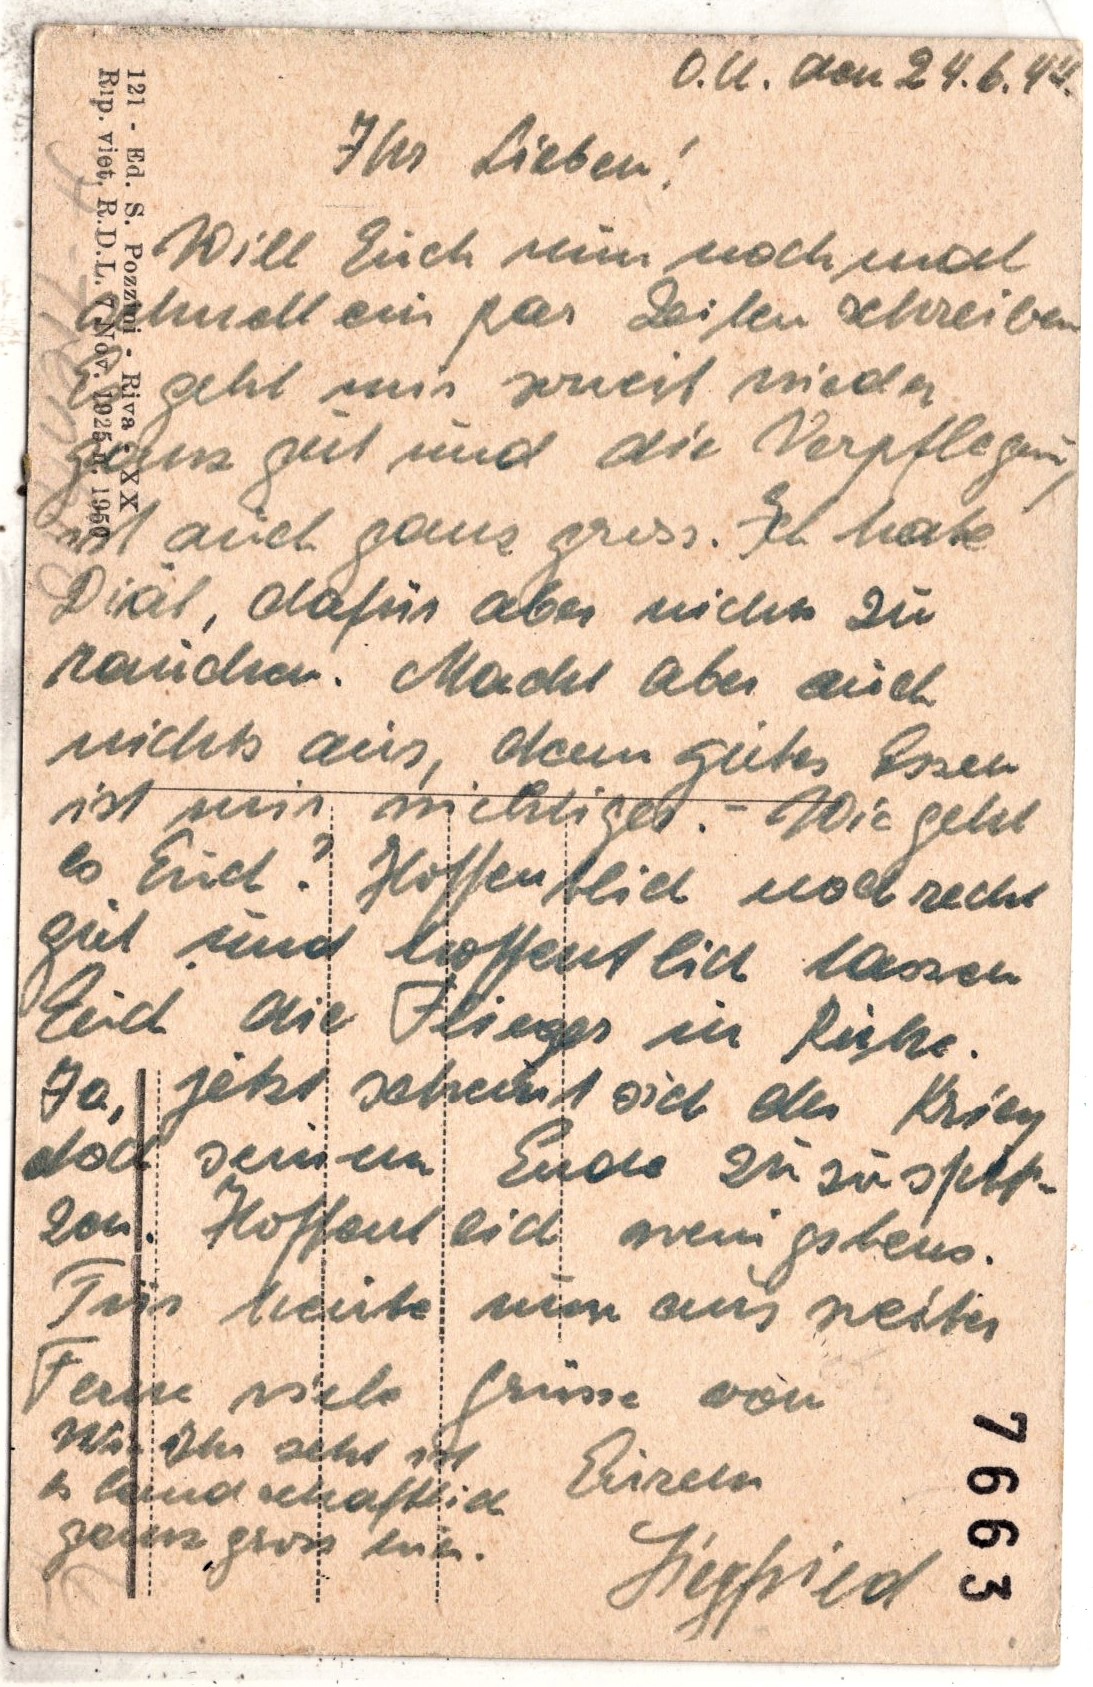 O.U. den 24.6.44.
Ihr Lieben!
Will Euch nun noch mal
schnell ein par Zeilen schreiben
Es geht mir soweit wieder
ganz gut und die Verpflegung
ist auch ganz gross. Ich habe
Diät, dafür aber nichts zu
rauchen. Macht aber auch
nichts aus, denn gutes Essen
ist mir wichtiger. - Wie geht
es Euch? Hoffentlich noch recht
gut und hoffentlich lassen
Euch die Flieger in Ruhe.
Ja, jetzt scheint sich der Krieg
doch seinem Ende zu zuspit-
zen. Hoffentlich wenigstens.
Für heute nun aus weiter
Ferne viele Grüsse von
Eurem
Siegfried
Wie Ihr seht ist
es landschaftlich
ganz gross hier.
121 - Ed. S. Pozzini - Riva - XX
Rip. viet. R.D.L. 7 Nov. 1925 n. 1950
7663